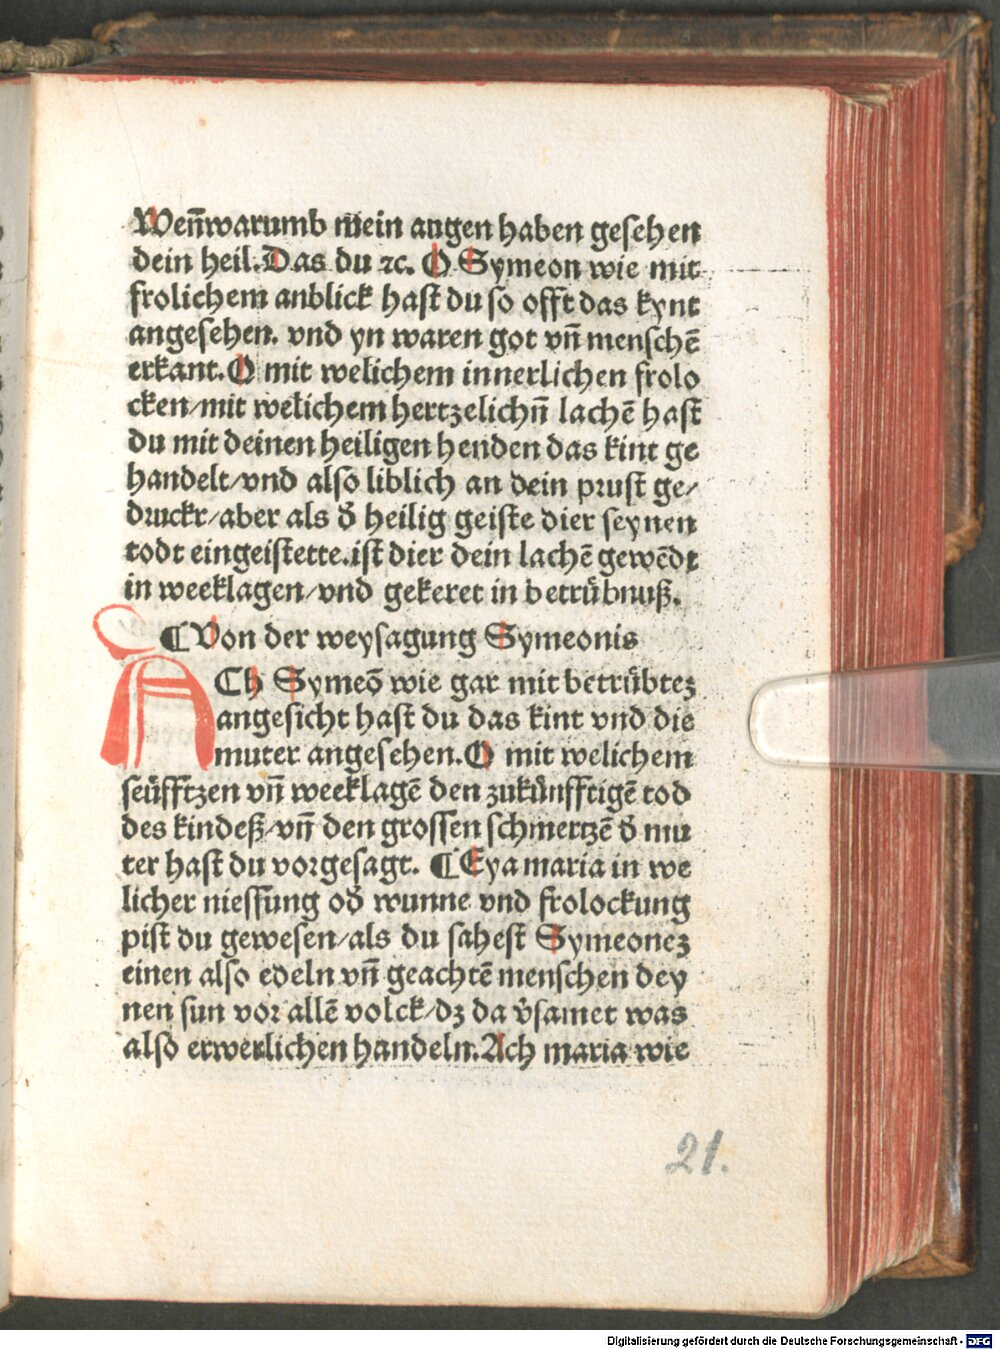 Weñwarumb mein augen haben gesehen
dein heil. Das du ⁊c. O Symeon wie mit
frolichem anblick hast du so offt das kynt
angesehen. vnd yn waren got vñ menschē
erkant. O mit welichem innerlichen frolo
cken/mit welichem hertzelichñ lachē hast
du mit deinen heiligen henden das kint ge
handelt/vnd also liblich an dein prust ge/
druckt/aber als d̄ heilig geiste dier seynen
todt eingeistette. ist dier dein lachē gewēdt
in weeklagen/vnd gekeret in betrübnuß.
¶ Von der weysagung Symeonis
ACh Symeō wie gar mit betrübtez
angesicht hast du das kint vnd die
muter angesehen. O mit welichem
seüfftzen vñ weeklagē den zukünfftigē tod
des kindeß/vñ den grossen schmertzē d̄ mu
ter hast du vorgesagt. ¶ Eya maria in we
licher niessung od̄ wunne vnd frolockung
pist du gewesen/als du sahest Symeonez
einen also edeln vñ geachtē menschen dey
nen sun vor allē volck/dz da v̄samet was
also erwerlichen handeln. Ach maria wie
21.
Digitalisierung gefördert durch die Deutsche Forschungsgemeinschaft - DFG